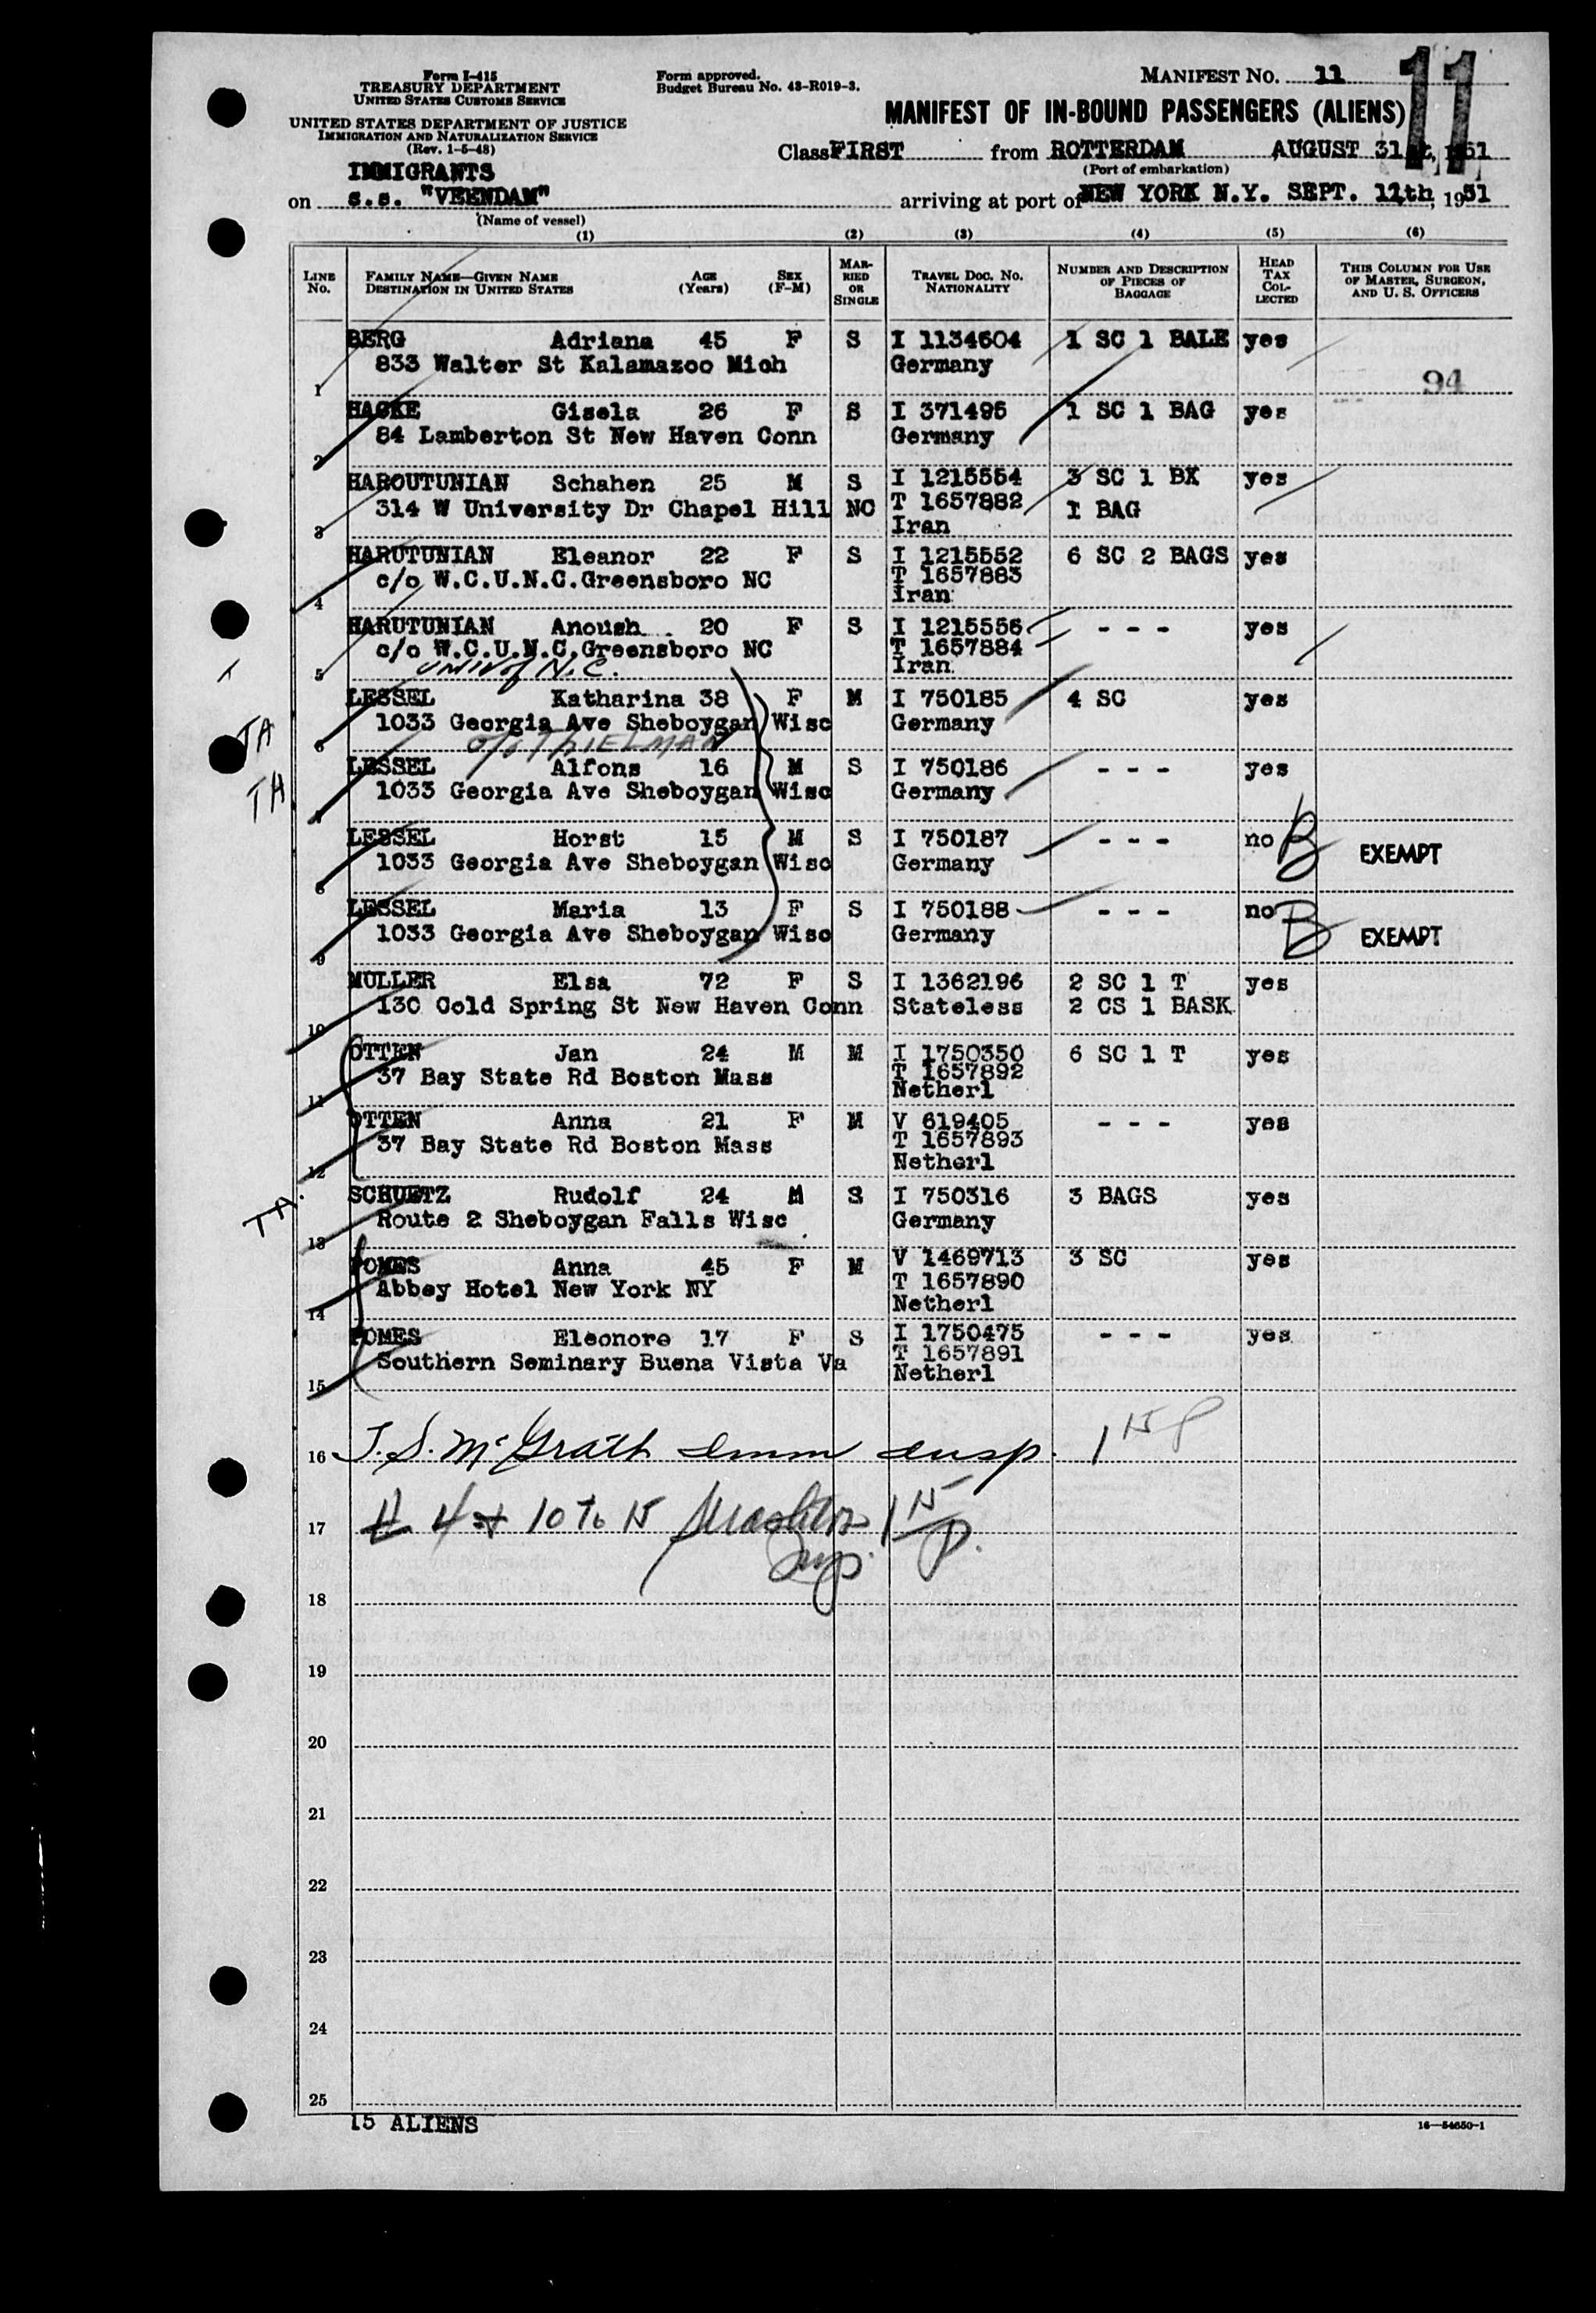 Form I-415
TREASURY DEPARTMENT
UNITED STATES CUSTOMS SERVICE
UNITED STATES DEPARTMENT OF JUSTICE
IMMIGRATION AND NATURALIZATION SERVICE
(Rev. 1-5-48)
Form approved.
Budget Bureau No. 43-R019-3.
MANIFEST NO. 11
11
MANIFEST OF IN-BOUND PASSENGERS (ALIENS)
Class FIRST from ROTTERDAM AUGUST 31st, 1951
(Port of embarkation)
IMMIGRANTS
on s.s. "VEENDAM" arriving at port of NEW YORK N.Y. SEPT. 11th, 1951
(Name of vessel)
(1) (2) (3) (4) (5) (6)
LINE NO. FAMILY NAME—GIVEN NAME DESTINATION IN UNITED STATES AGE (Years) SEX (F-M) MARRIED OR SINGLE TRAVEL DOC. NO. NATIONALITY NUMBER AND DESCRIPTION OF PIECES OF BAGGAGE HEAD TAX COLLECTED THIS COLUMN FOR USE OF MASTER, SURGEON, AND U. S. OFFICERS
BERG Adriana 45 F S I 1134604 1 SC 1 BALE yes
833 Walter St Kalamazoo Mich Germany
1 94
HACKE Gisela 26 F S I 371495 1 SC 1 BAG yes
84 Lamberton St New Haven Conn Germany
2
HAROUTUNIAN Schahen 25 M S I 1215554 3 SC 1 BX yes
314 W University Dr Chapel Hill NC T 1657882 1 BAG
3 Iran
HARUTUNIAN Eleanor 22 F S I 1215552 6 SC 2 BAGS yes
c/o W.C.U.N.C.Greensboro NC T 1657883
4 Iran
HARUTUNIAN Anoush 20 F S I 1215556 - - - yes
c/o W.C.U.N.C.Greensboro NC T 1657884
5 UNIV of N.C. Iran
LESSEL Katharina 38 F M I 750185 4 SC yes
TA 1033 Georgia Ave Sheboygan Wisc Germany
6 c/o THIELMAN
LESSEL Alfons 16 M S I 750186 - - - yes
TA 1033 Georgia Ave Sheboygan Wisc Germany
7
LESSEL Horst 15 M S I 750187 - - - no B EXEMPT
1033 Georgia Ave Sheboygan Wisc Germany
8
LESSEL Maria 13 F S I 750188 - - - no B EXEMPT
1033 Georgia Ave Sheboygan Wisc Germany
9
MULLER Elsa 72 F S I 1362196 2 SC 1 T yes
130 Cold Spring St New Haven Conn Stateless 2 CS 1 BASK
10
OTTEN Jan 24 M M I 1750350 6 SC 1 T yes
37 Bay State Rd Boston Mass T 1657892
11 Netherl
OTTEN Anna 21 F M V 619405 - - - yes
37 Bay State Rd Boston Mass T 1657893
12 Netherl
SCHUETZ Rudolf 24 M S I 750316 3 BAGS yes
TA. Route 2 Sheboygan Falls Wisc Germany
13
POMES Anna 45 F M V 1469713 3 SC yes
Abbey Hotel New York NY T 1657890
14 Netherl
POMES Eleonore 17 F S I 1750475 - - - yes
Southern Seminary Buena Vista Va T 1657891
15 Netherl
16 J. S. McGrath Imm Insp. 1 15 P
17 # 4 + 10 To 15 Insp. 1 15 P.
18
19
20
21
22
23
24
25
15 ALIENS
16—54650-1